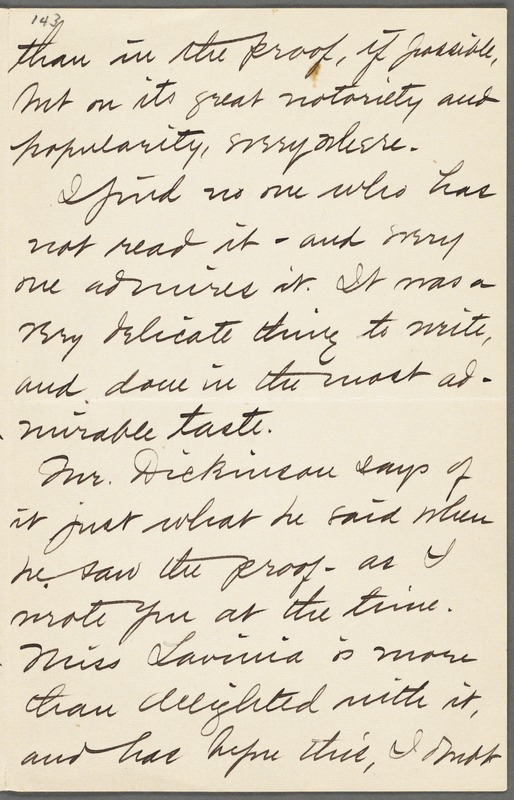 143
than in the proof, if possible,
but on its great notoriety and
popularity, everywhere.
I find no one who has
not read it - and every
one admires it. It was a
very delicate thing to write,
and done in the most ad-
mirable taste.
Mr. Dickinson says of
it just what he said when
he saw the proof - as I
wrote you at the time.
Miss Lavinia is more
than delighted with it,
and has before this, I doubt